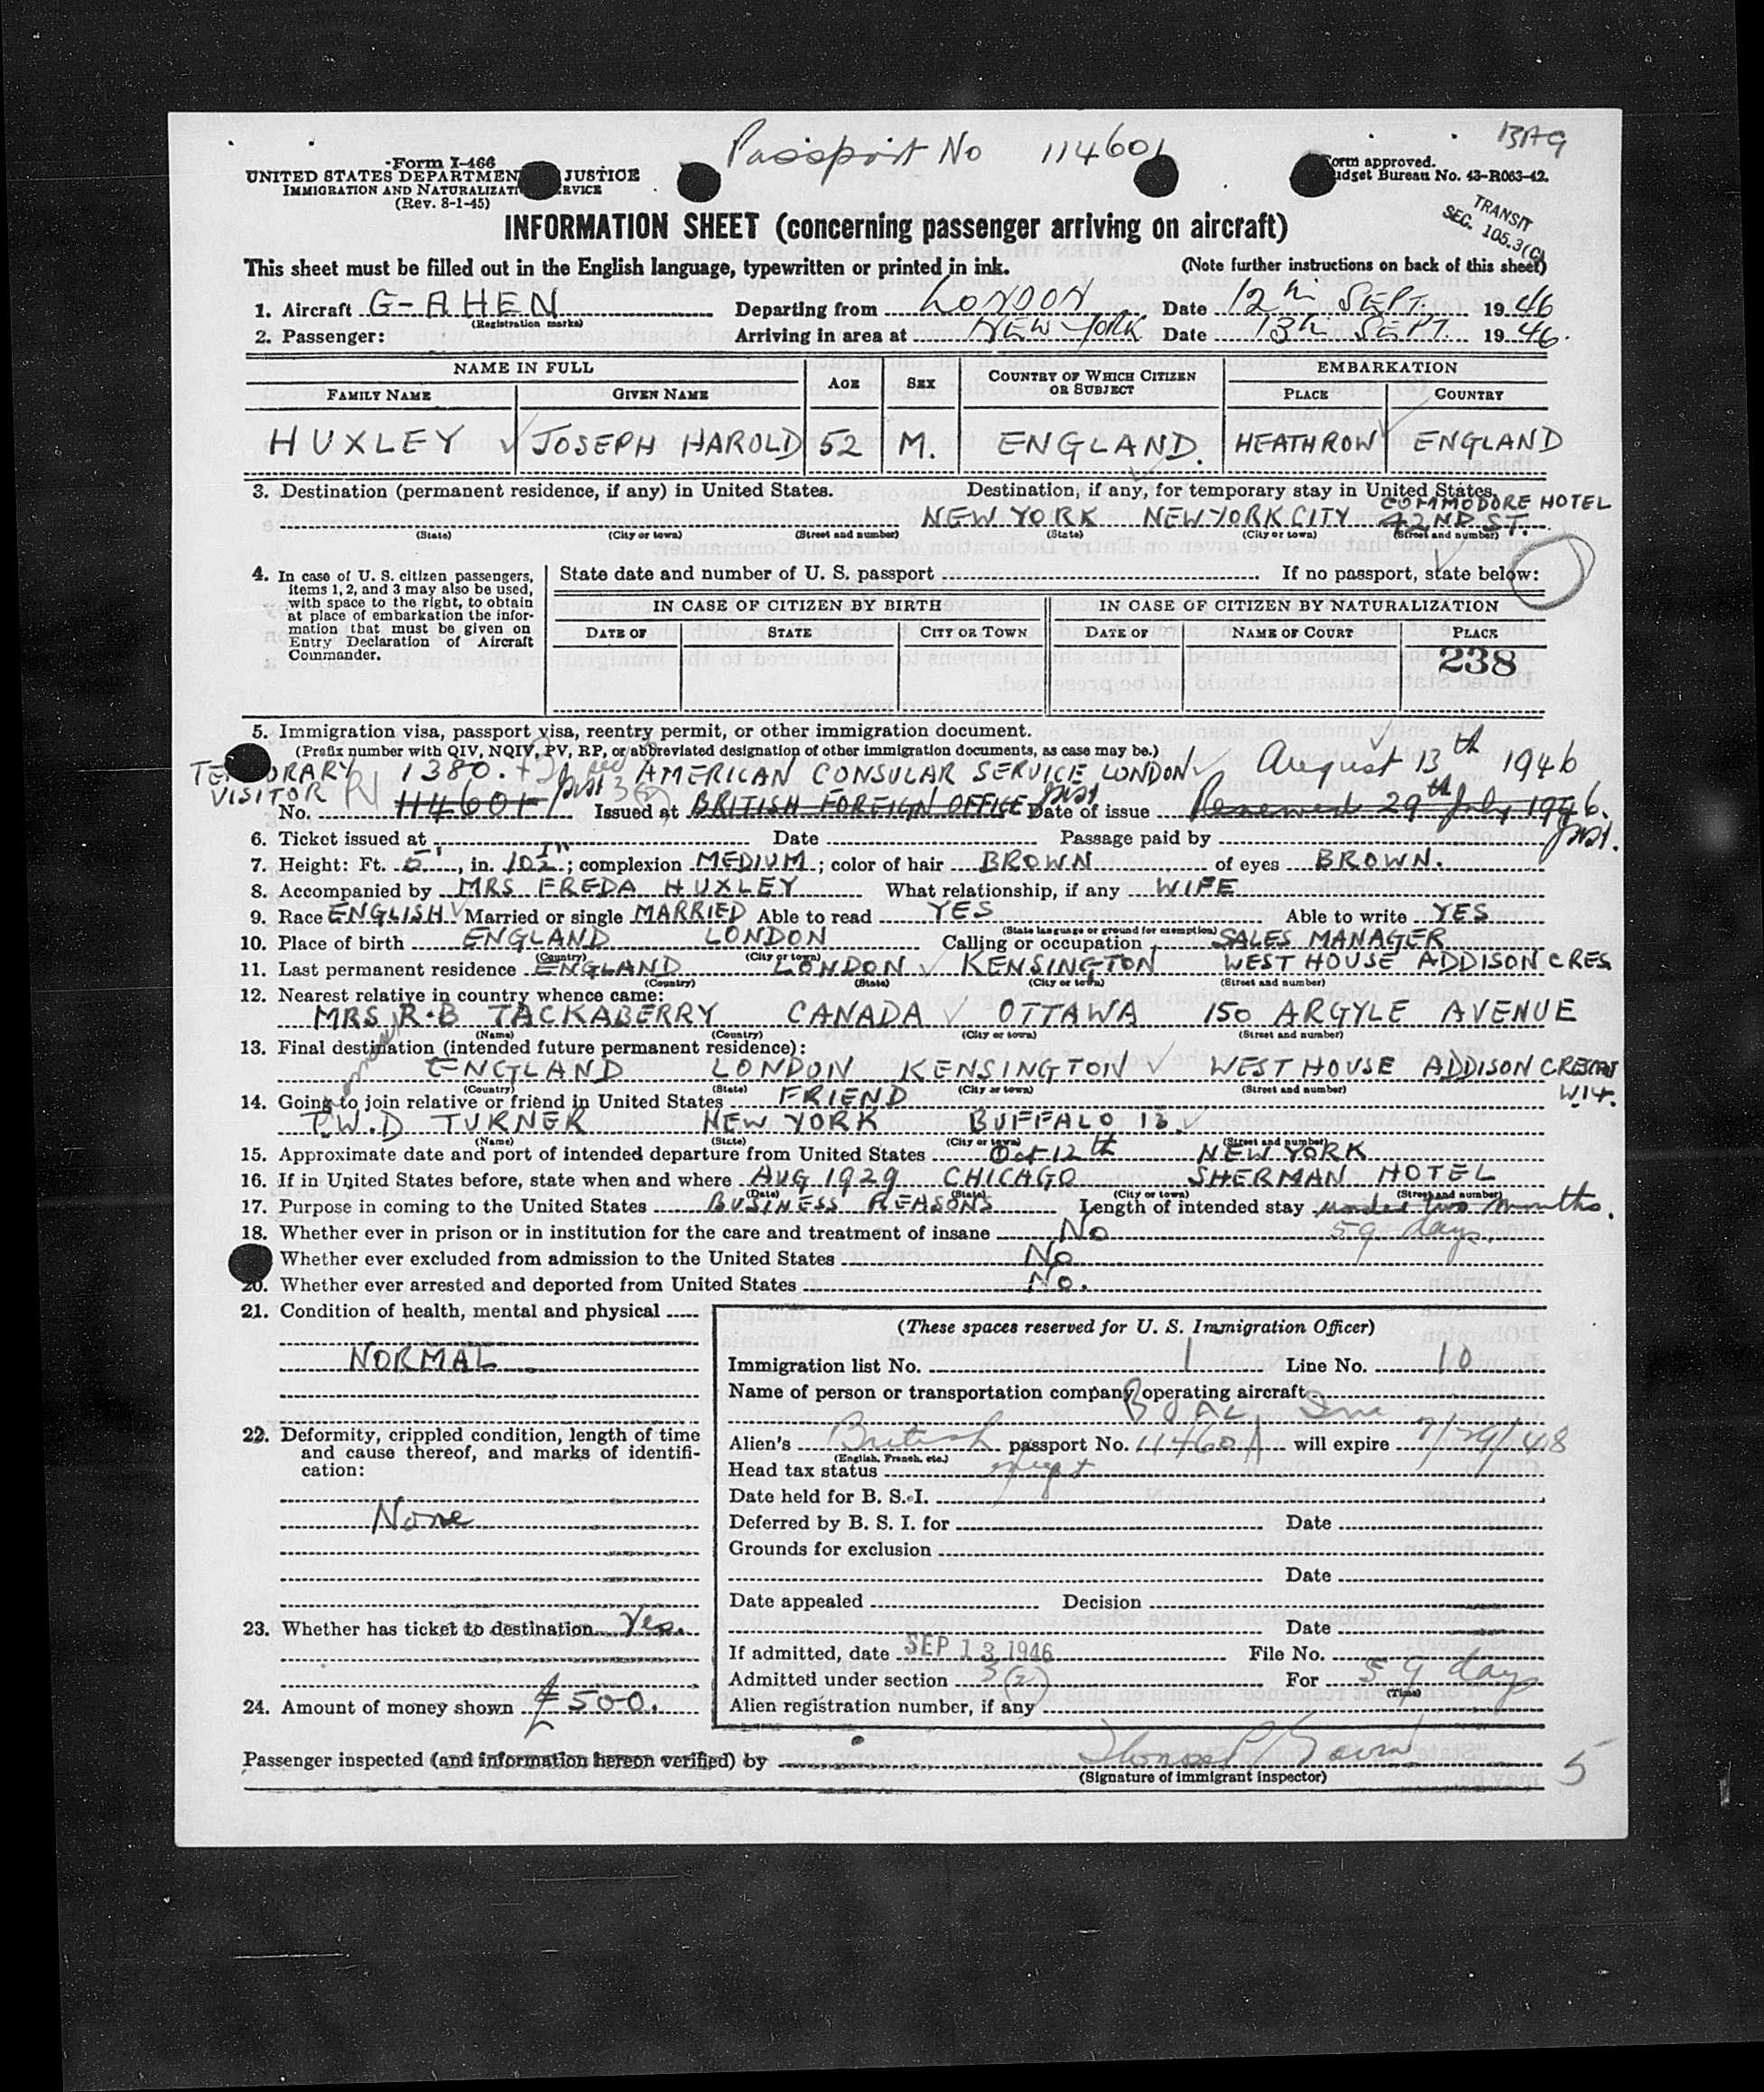 Passport No 114601
BAG
Form I-466
UNITED STATES DEPARTMEN JUSTICE
IMMIGRATION AND NATURALIZATI RVICE
(Rev. 8-1-45)
orm approved.
udget Bureau No. 43-R063-42.
TRANSIT
SEC. 105.3(C)
INFORMATION SHEET (concerning passenger arriving on aircraft)
This sheet must be filled out in the English language, typewritten or printed in ink. (Note further instructions on back of this sheet)
1. Aircraft G-AHEN Departing from LONDON Date 12th SEPT. 1946
(Registration marks)
2. Passenger: Arriving in area at NEW YORK Date 13th SEPT. 1946.
NAME IN FULL AGE SEX COUNTRY OF WHICH CITIZEN OR SUBJECT EMBARKATION
FAMILY NAME GIVEN NAME PLACE COUNTRY
HUXLEY JOSEPH HAROLD 52 M. ENGLAND. HEATHROW ENGLAND
3. Destination (permanent residence, if any) in United States. Destination, if any, for temporary stay in United States.
COMMODORE HOTEL
NEW YORK NEW YORK CITY 42ND ST.
(State) (City or town) (Street and number) (State) (City or town) (Street and number)
4. In case of U. S. citizen passengers, items 1, 2, and 3 may also be used, with space to the right, to obtain at place of embarkation the information that must be given on Entry Declaration of Aircraft Commander.
State date and number of U. S. passport If no passport, state below:
IN CASE OF CITIZEN BY BIRTH IN CASE OF CITIZEN BY NATURALIZATION
DATE OF STATE CITY OR TOWN DATE OF NAME OF COURT PLACE
238
5. Immigration visa, passport visa, reentry permit, or other immigration document.
(Prefix number with QIV, NQIV, PV, RP, or abbreviated designation of other immigration documents, as case may be.)
TE ORARY 1380. AMERICAN CONSULAR SERVICE LONDON August 13th 1946
VISITOR PV 3(2)
No. 114601 Issued at BRITISH FOREIGN OFFICE Date of issue Renewed 29th July 1946.
6. Ticket issued at Date Passage paid by
7. Height: Ft. 5', in. 10½"; complexion MEDIUM; color of hair BROWN of eyes BROWN.
8. Accompanied by MRS FREDA HUXLEY What relationship, if any WIFE
9. Race ENGLISH Married or single MARRIED Able to read YES Able to write YES
(State language or ground for exemption)
10. Place of birth ENGLAND LONDON Calling or occupation SALES MANAGER
(Country) (City or town)
11. Last permanent residence ENGLAND LONDON KENSINGTON WEST HOUSE ADDISON CRES
(Country) (State) (City or town) (Street and number)
12. Nearest relative in country whence came:
MRS R.B TACKABERRY CANADA OTTAWA 150 ARGYLE AVENUE
(Name) (Country) (City or town) (Street and number)
13. Final destination (intended future permanent residence):
ENGLAND LONDON KENSINGTON WEST HOUSE ADDISON CRESENT
W.14.
(Country) (State) (City or town) (Street and number)
14. Going to join relative or friend in United States FRIEND
T.W.D TURNER NEW YORK BUFFALO 13.
(Name) (State) (City or town) (Street and number)
15. Approximate date and port of intended departure from United States Oct 12th NEW YORK
16. If in United States before, state when and where AUG 1929 CHICAGO SHERMAN HOTEL
(Date) (State) (City or town) (Street and number)
17. Purpose in coming to the United States BUSINESS REASONS Length of intended stay under two months.
59 days.
18. Whether ever in prison or in institution for the care and treatment of insane No
Whether ever excluded from admission to the United States No
20. Whether ever arrested and deported from United States No.
21. Condition of health, mental and physical
NORMAL
22. Deformity, crippled condition, length of time and cause thereof, and marks of identification:
None
23. Whether has ticket to destination Yes.
24. Amount of money shown £500.
(These spaces reserved for U. S. Immigration Officer)
Immigration list No. 1 Line No. 10
Name of person or transportation company operating aircraft
B O A C Inc
Alien's British passport No. 114601 will expire 7/29/48
(English, French, etc.)
Head tax status exempt
Date held for B. S. I.
Deferred by B. S. I. for Date
Grounds for exclusion
Date
Date appealed Decision
Date
If admitted, date SEP 13 1946 File No.
Admitted under section 3(2) For 59 days
(Time)
Alien registration number, if any
Passenger inspected (and information hereon verified) by
(Signature of immigrant inspector)
5